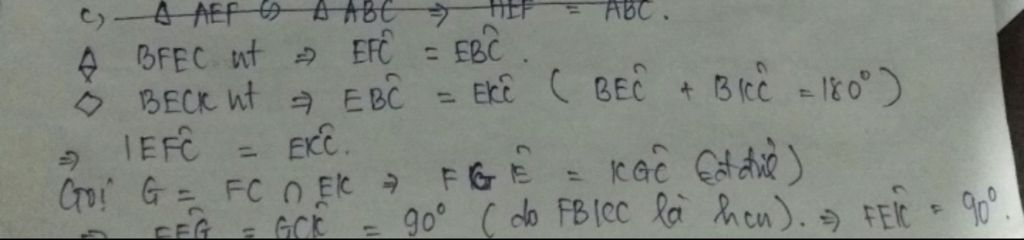 c) Δ AEF ∽ Δ ABC ⇒ AEF = ABC.
◇ BFEC nt ⇒ EFĈ = EBĈ.
◇ BECK nt ⇒ EBĈ = EKĈ ( BEĈ + BKĈ = 180°)
⇒ EFĈ = EKĈ.
Gọi G = FC ∩ EK ⇒ FGÊ = KGĈ (đđ)
⇒ FEĜ = GCK̂ = 90° ( do FBKC là hcn). ⇒ FEK̂ = 90°.